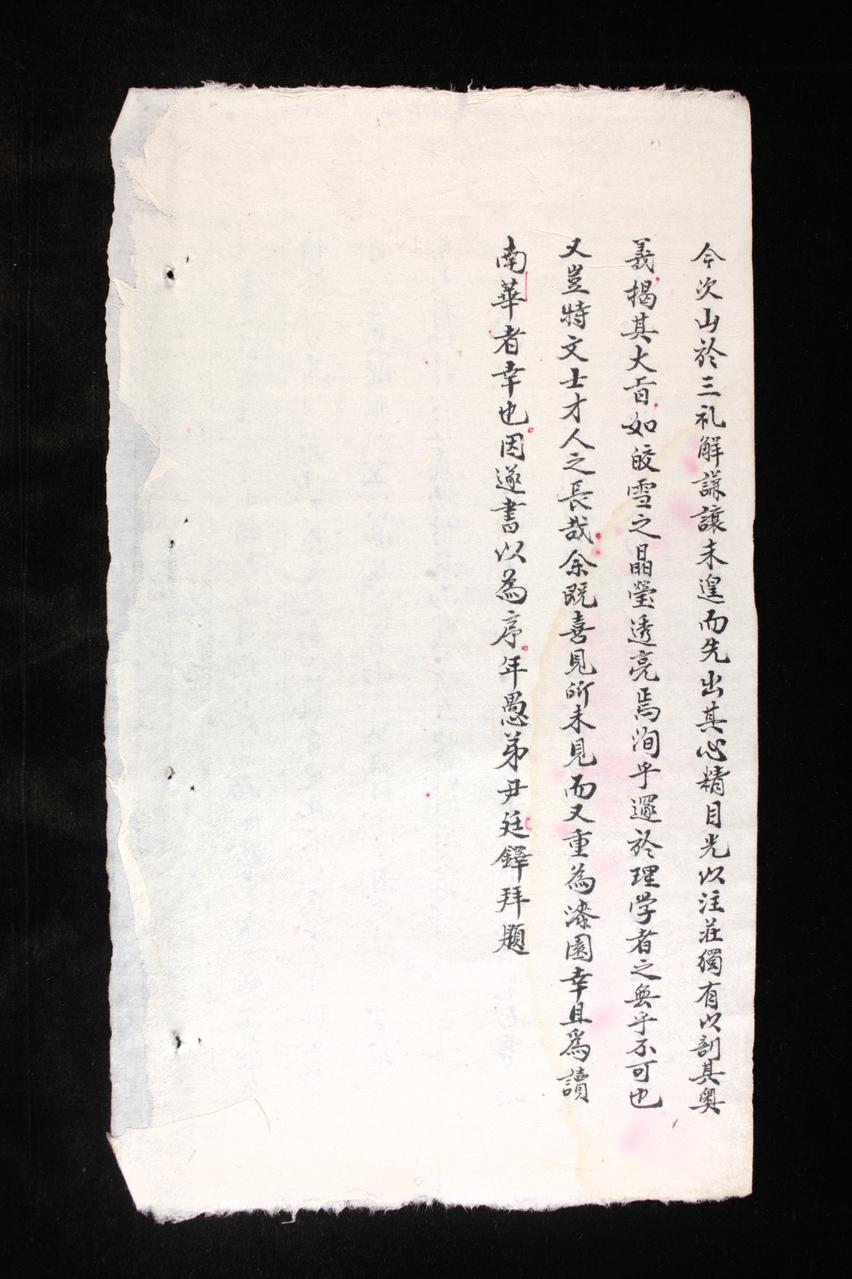 今次山於三礼解謙讓未遑而先出其心精目光以注莊獨有以剖其奧
義揭其大旨如皎雪之晶瑩透亮焉洵乎邃於理学者之無乎不可也
又豈特文士才人之長哉余既喜見所未見而又重為漆園幸且為讀
南華者幸也因遂書以為序年愚弟尹廷鐸拜題